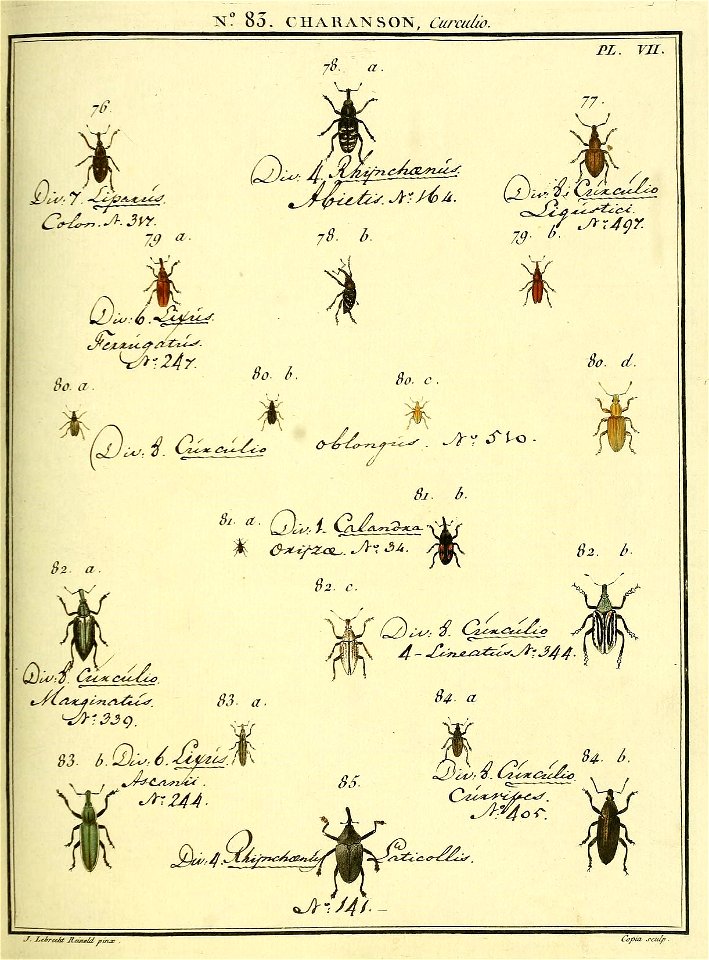 N.º 83. CHARANSON, Curculio.
PL. VII.
78. a.
76.
77.
Div: 4. Rhÿnchænús
Abietis. Nº 164.
Div: 7. Liparús.
Colon. N. 317.
Div: 8. Cúrcúlio
Ligústici.
Nº 497.
79 a.
78. b.
79. b.
Div: 6. Lixús.
Ferrúgatús.
Nº 247.
80. a.
80. b.
80. c.
80. d.
Div: 8. Cúrcúlio oblongus. Nº 510.
81. a.
81. b.
Div: 1. Calandra
Orijzæ. Nº 34.
82. a.
82. c.
82. b.
Div: 8. Cúrcúlio
4-Lineatús Nº 344.
Div: 8. Cúrcúlio.
Marginatús.
Nº 339.
83. a.
84. a
83. b.
Div: 6. Lixús.
Ascanii.
Nº 244.
84. b.
Div: 8. Cúrcúlio
Cúrvipes.
Nº 405.
85.
Div: 4. Rhijnchænús Laticollis.
Nº 141.-
J. Lebrecht Reinold pinx.
Copia sculp.